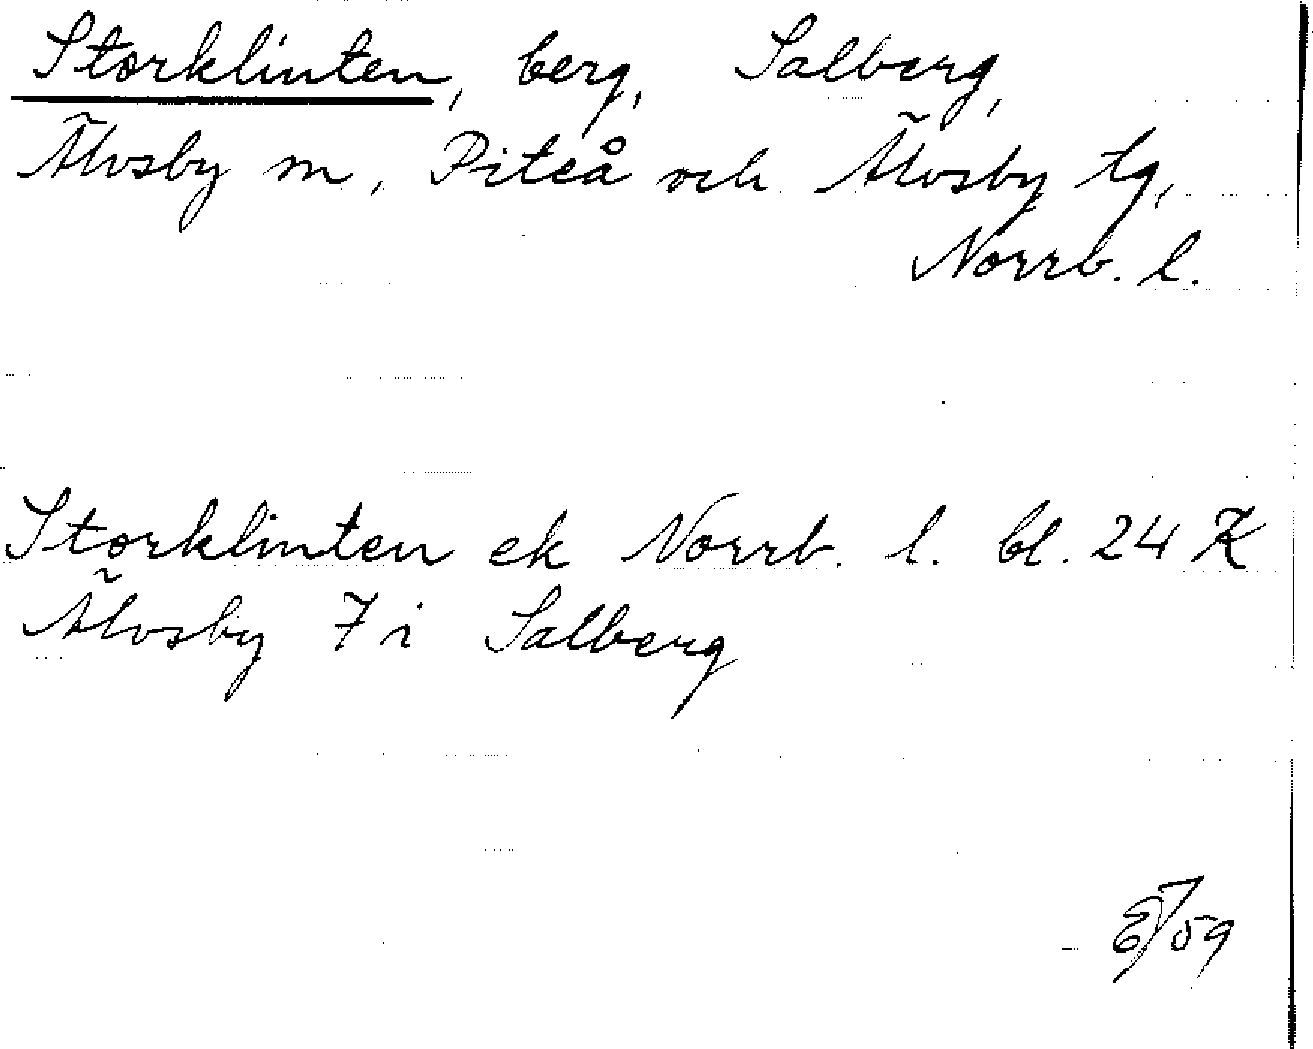 Storklinten, berg, Salberg,
Älvsby m, Piteå och Älvsby tg,
Norrb. l.
Storklinten ek Norrb. l. bl. 24 K
Älvsby 7 i Salberg
59